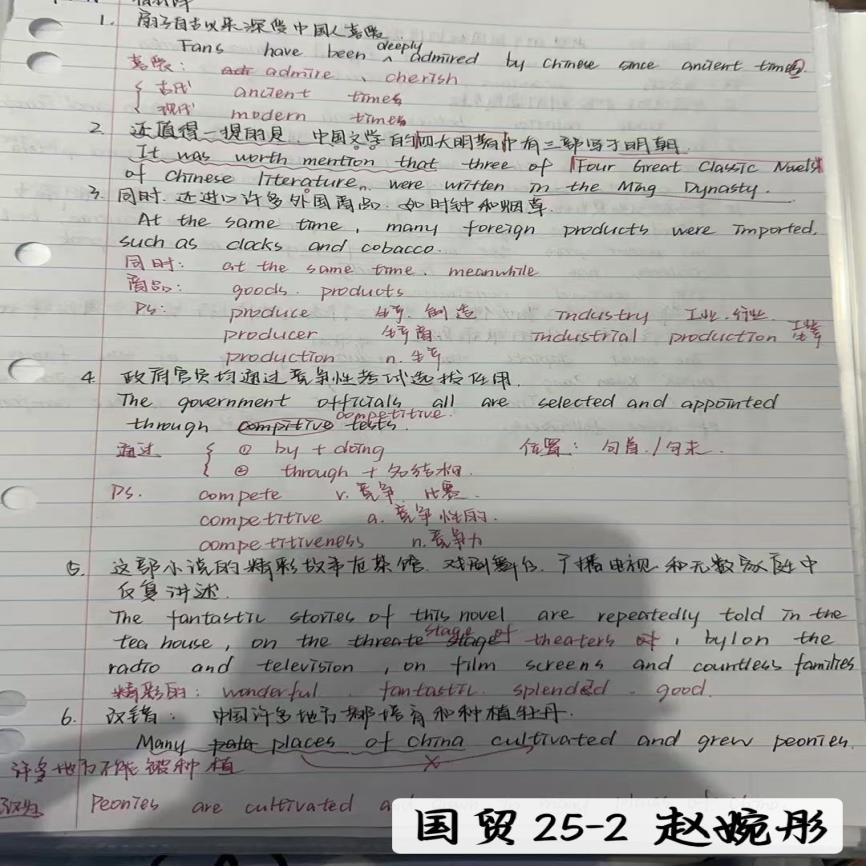 1. 扇子自古以来深受中国人喜爱.
Fans have been deeply admired by Chinese since ancient times.
喜爱: admire 、cherish
古代 ancient times
现代 modern times
2. 还值得一提的是,中国文学的四大名著中有三部写于明朝.
It was worth mention that three of Four Great Classic Novels
of Chinese literature were written in the Ming Dynasty.
3. 同时.还进口许多外国商品.如时钟和烟草.
At the same time, many foreign products were imported,
such as clocks and cobacco.
同时: at the same time. meanwhile
商品: goods. products
Ps: produce 生产.制造 industry 工业.行业
producer 生产商. industrial production 工业生产
production n. 生产
4. 政府官员均通过竞争性考试选拔任用.
The government officials all are selected and appointed
through compitive competitive tests.
通过 ① by + doing 位置: 句首./句末.
② through + 名结构.
Ps. compete v. 竞争.比赛.
competitive a. 竞争性的.
competitiveness n. 竞争力
5. 这部小说的精彩故事在茶馆.戏剧舞台.广播电视和无数家庭中
反复讲述.
The fantastic stories of this novel are repeatedly told in the
tea house, on the stage of theaters, by/on the
radio and television, on film screens and countless families
精彩的: wonderful. fantastic. splended. good.
6. 改错: 中国许多地方都培育和种植牡丹.
Many places of China cultivated and grew peonies.
许多地方不能被种植
Peonies are cultivated
国贸25-2 赵婉彤